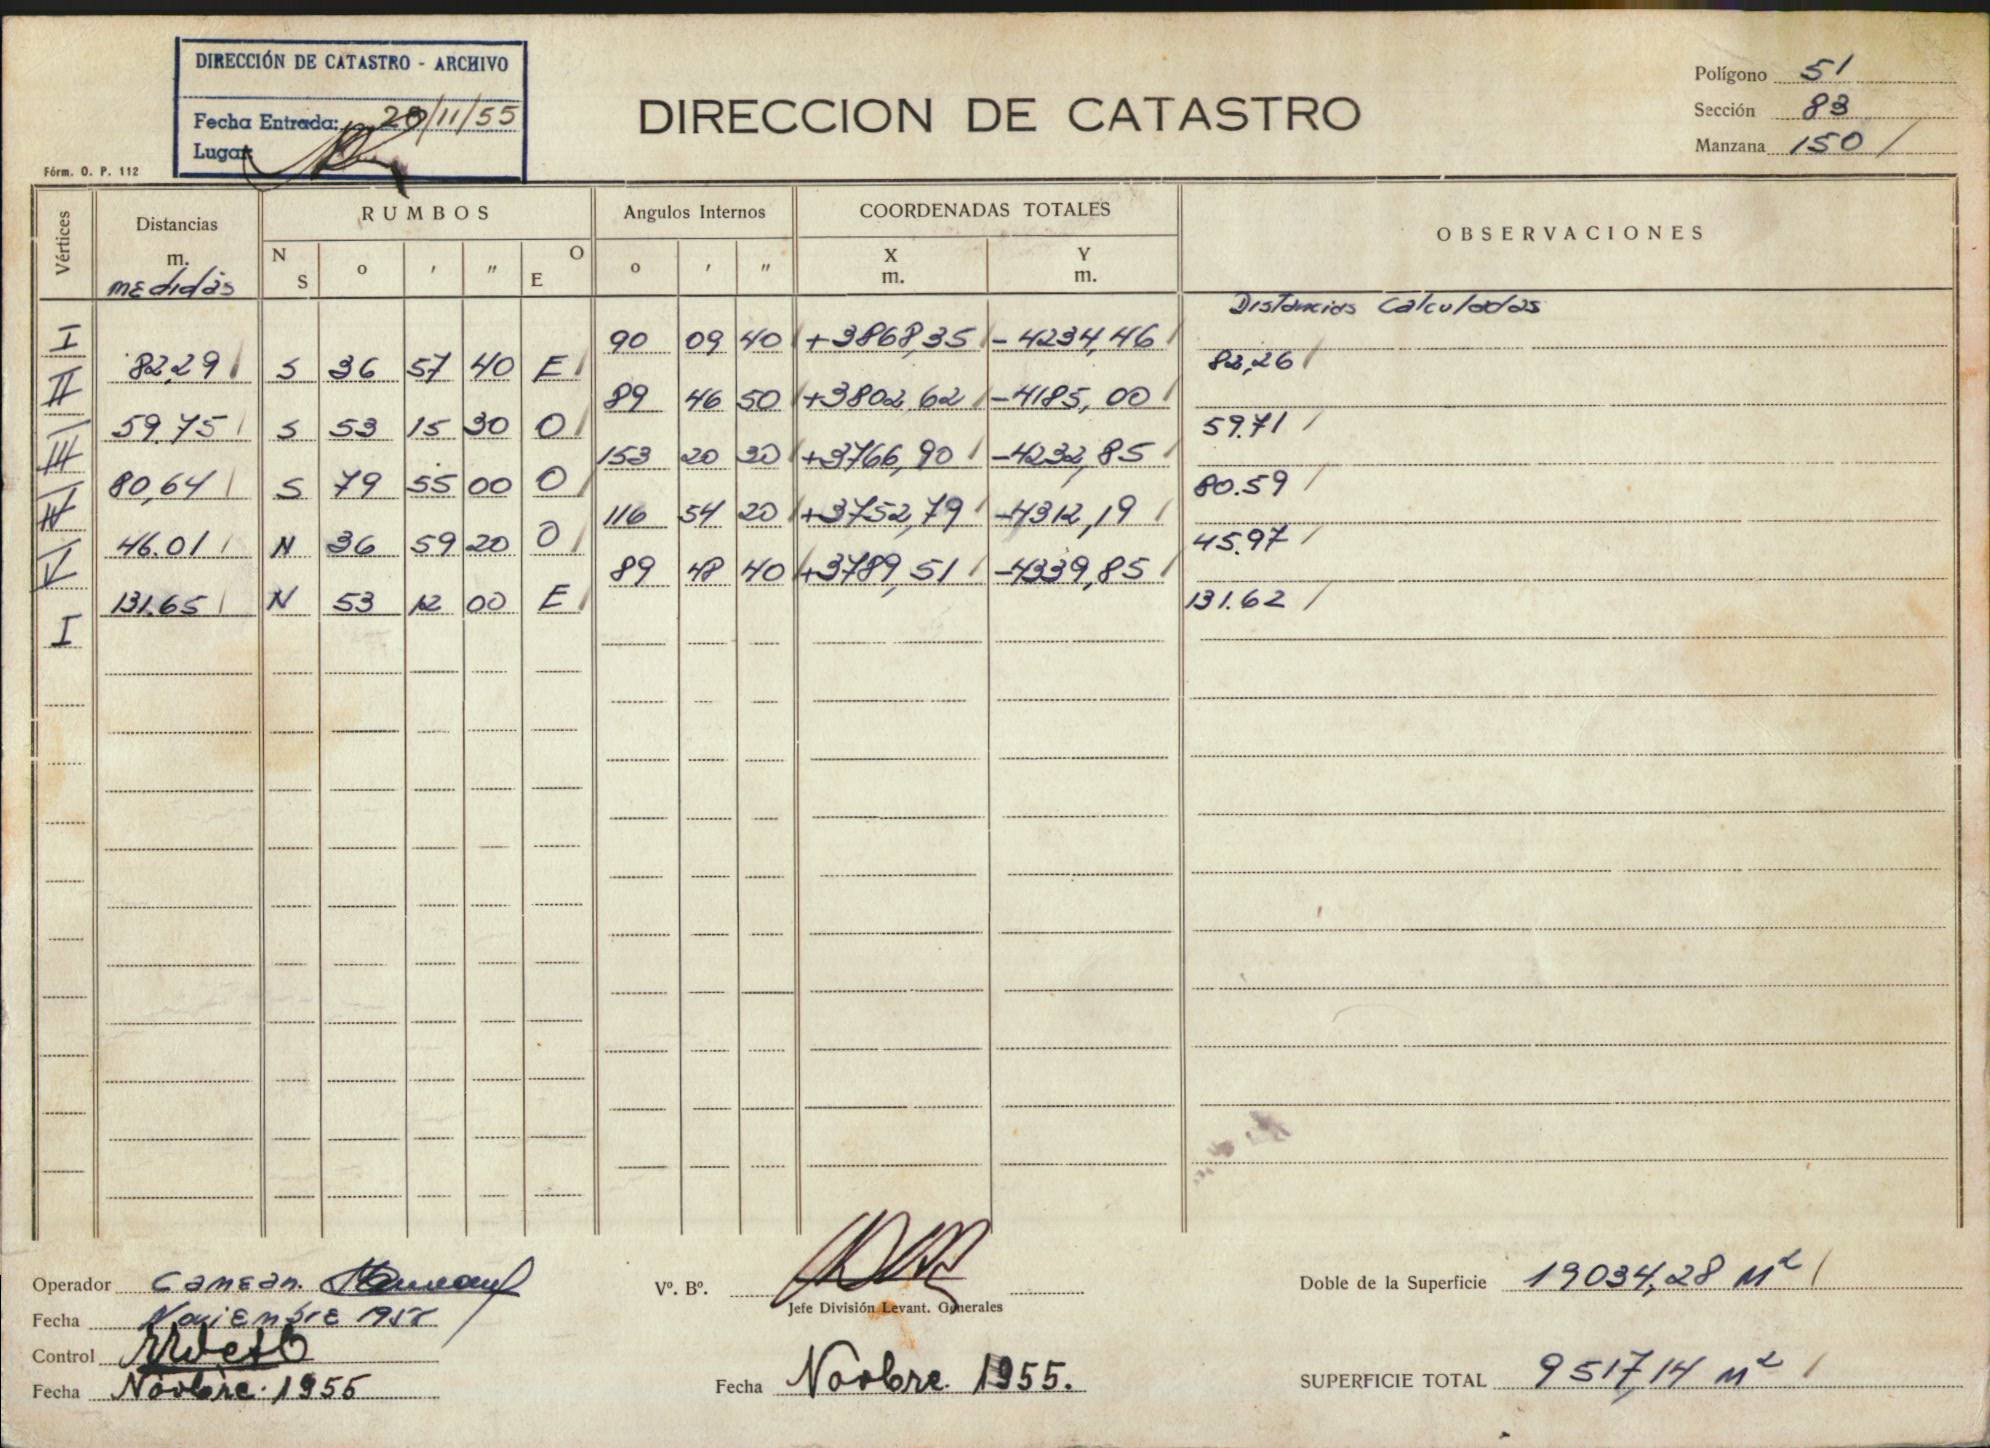 DIRECCIÓN DE CATASTRO - ARCHIVO
Fecha Entrada: 28/11/55
Lugar
DIRECCION DE CATASTRO
Polígono 51
Sección 83
Manzana 150
Fórm. O. P. 112
Vértices Distancias m. medidas RUMBOS Angulos Internos COORDENADAS TOTALES OBSERVACIONES
N S o ' " O E o ' " X m. Y m.
Distancias Calculadas
I 90 09 40 +3868,35 -4234,46
82,29 S 36 57 40 E 82,26
II 89 46 50 +3802,62 -4185,00
59.75 S 53 15 30 O 59.71
III 153 20 30 +3766,90 -4232,85
80,64 S 79 55 00 O 80.59
IV 116 54 20 +3752,79 -4312,19
46.01 N 36 59 20 O 45.97
V 89 48 40 +3789,51 -4339,85
131.65 N 53 12 00 E 131.62
I
Operador Camean.
Fecha Noviembre 1955
Control
Fecha Novbre. 1955
Vº. Bº.
Jefe División Levant. Generales
Fecha Novbre. 1955.
Doble de la Superficie 19034,28 M²
SUPERFICIE TOTAL 9517,14 M²